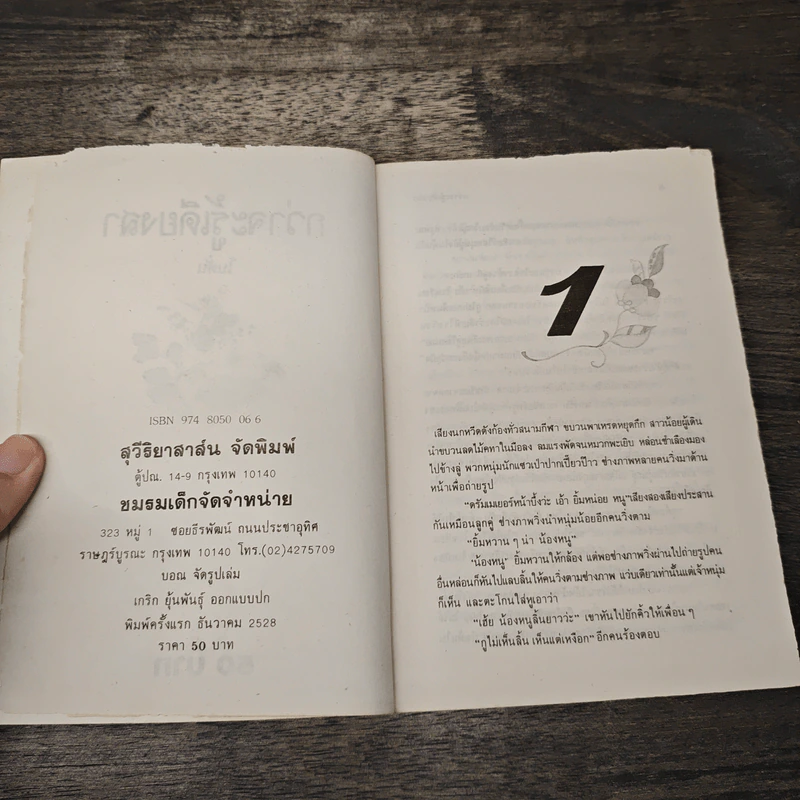 ISBN 974 8050 06 6
สุวีริยาสาส์น จัดพิมพ์
ตู้ปณ. 14-9 กรุงเทพ 10140
ชมรมเด็กจัดจำหน่าย
323 หมู่ 1 ซอยธีรพัฒน์ ถนนประชาอุทิศ
ราษฎร์บูรณะ กรุงเทพ 10140 โทร.(02)4275709
บอณ จัดรูปเล่ม
เกริก ยุ้นพันธุ์ ออกแบบปก
พิมพ์ครั้งแรก ธันวาคม 2528
ราคา 50 บาท
1
เสียงนกหวีดดังก้องทั่วสนามกีฬา ขบวนพาเหรดหยุดกึก สาวน้อยผู้เดิน
นำขบวนลดไม้คทาในมือลง ลมแรงพัดจนหมวกพะเยิบ หล่อนชำเลืองมอง
ไปข้างลู่ พวกหนุ่มนักแซวเป่าปากเปี๊ยวป๊าว ช่างภาพหลายคนวิ่งมาด้าน
หน้าเพื่อถ่ายรูป
"ดรัมเมเยอร์หน้าบึ้งว่ะ เอ้า ยิ้มหน่อย หนู" เสียงสองเสียงประสาน
กันเหมือนลูกคู่ ช่างภาพวิ่งนำหนุ่มน้อยอีกคนวิ่งตาม
"ยิ้มหวาน ๆ น่า น้องหนู"
'น้องหนู' ยิ้มหวานให้กล้อง แต่พอช่างภาพวิ่งผ่านไปถ่ายรูปคน
อื่นหล่อนก็หันไปแลบลิ้นให้คนวิ่งตามช่างภาพ แว่บเดียวเท่านั้นแต่เจ้าหนุ่ม
ก็เห็น และตะโกนใส่หูเอาว่า
"เฮ้ย น้องหนูลิ้นยาวว่ะ" เขาหันไปยักคิ้วให้เพื่อน ๆ
"กูไม่เห็นลิ้น เห็นแต่เหงือก" อีกคนร้องตอบ